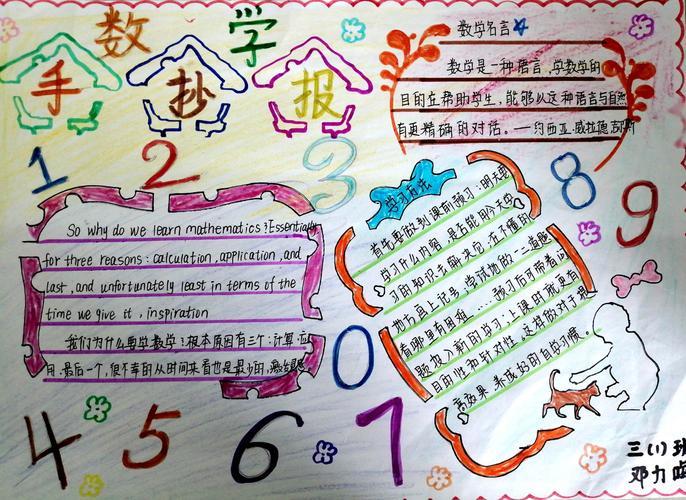 数学
手抄报
数学名言
数学是一种语言,学数学的
目的在帮助学生,能够以这种语言与自然
有更精确的对话。——约西亚·威拉德吉布斯
1 2 3 8 9
学习方法
首先要做到课前预习:明天要
学习什么内容,是否能用今天学
习的知识去解决它,在不懂的
地方画上记号,尝试地做一二道题
看哪里有困难……预习后可带着问
题投入新的学习,上课时就更有
目的性和针对性。这样做对于提
高效果,养成好的自学习惯。
So why do we learn mathematics?Essentially
for three reasons: calculation, application, and
last, and unfortunately least in terms of the
time we give it, inspiration
我们为什么要学数学?根本原因有三个:计算,应
用,最后一个,很不幸的从时间来看也是最少的,激发
0
4 5 6 7
三(1)班
邓力